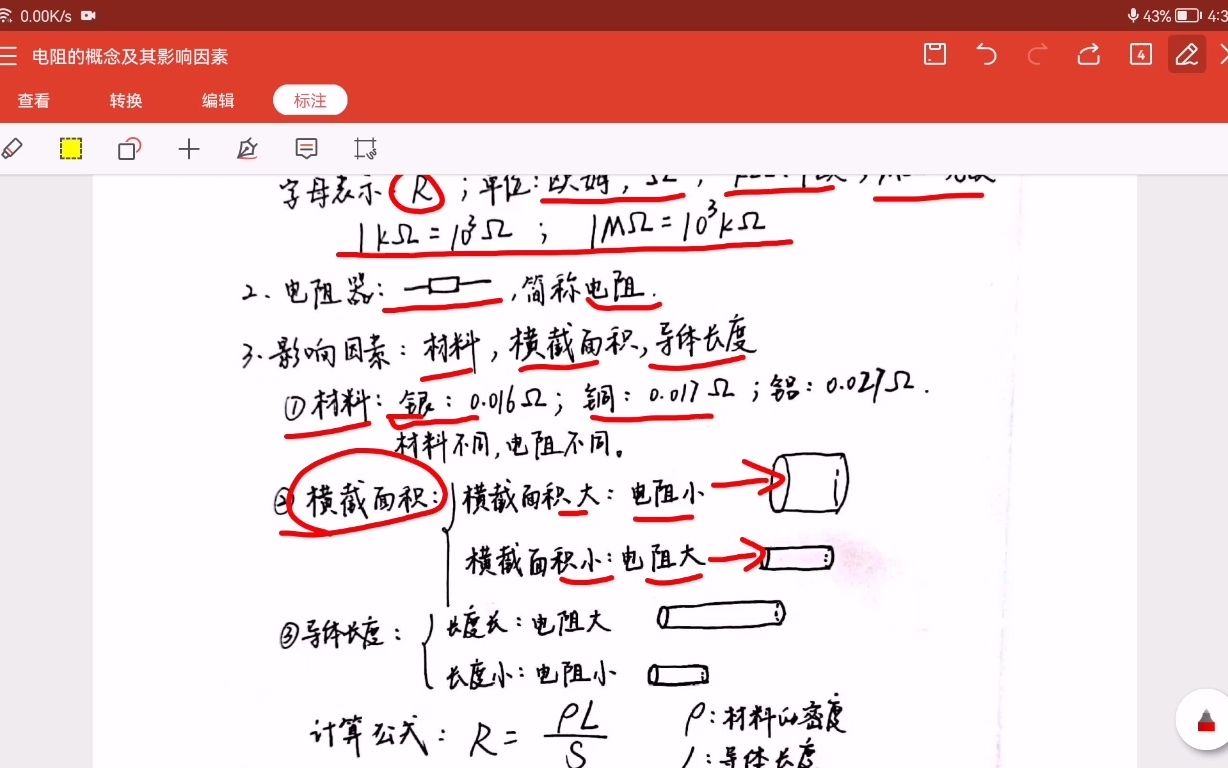 0.00K/s 43% 4:3
电阻的概念及其影响因素 4
查看 转换 编辑 标注
字母表示 R ; 单位: 欧姆, Ω,
1kΩ=10³Ω ; 1MΩ=10³kΩ
2、电阻器: ,简称电阻.
3、影响因素: 材料, 横截面积, 导体长度
①材料: 银: 0.016Ω; 铜: 0.017Ω; 铝: 0.027Ω.
材料不同,电阻不同。
②横截面积: 横截面积大: 电阻小
横截面积小: 电阻大
③导体长度: 长度长: 电阻大
长度小: 电阻小
计算公式: R = ρL/S ρ: 材料的密度
L: 导体长度